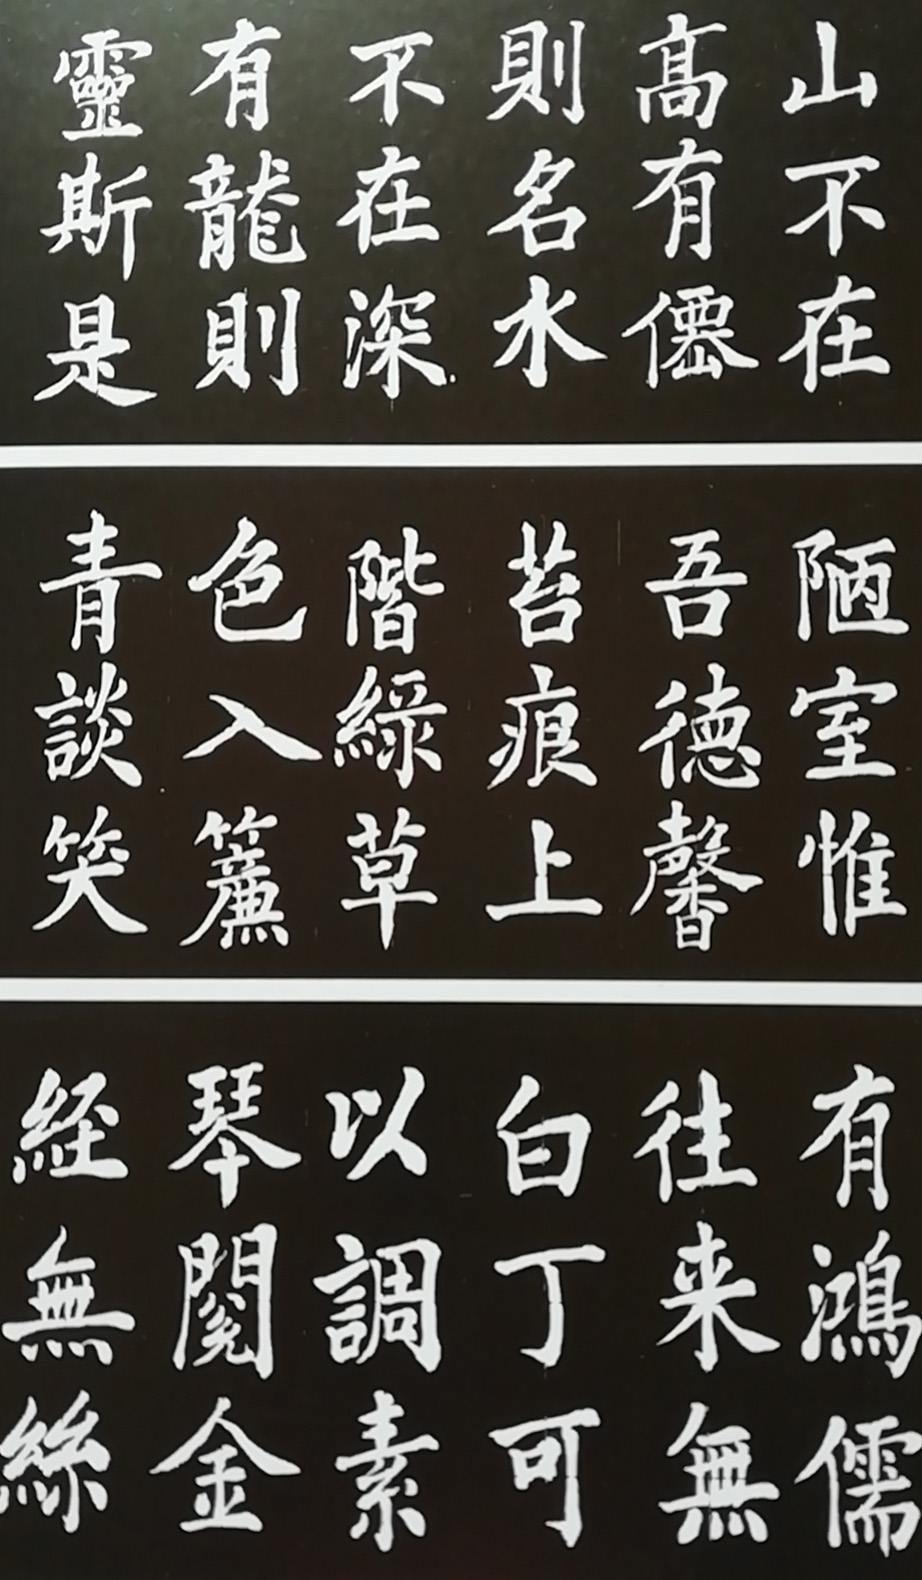 山不在
高有僊
則名水
不在深
有龍則
靈斯是
陋室惟
吾德馨
苔痕上
階綠草
色入簾
青談笑
有鴻儒
往来無
白丁可
以調素
琴閱金
経無絲